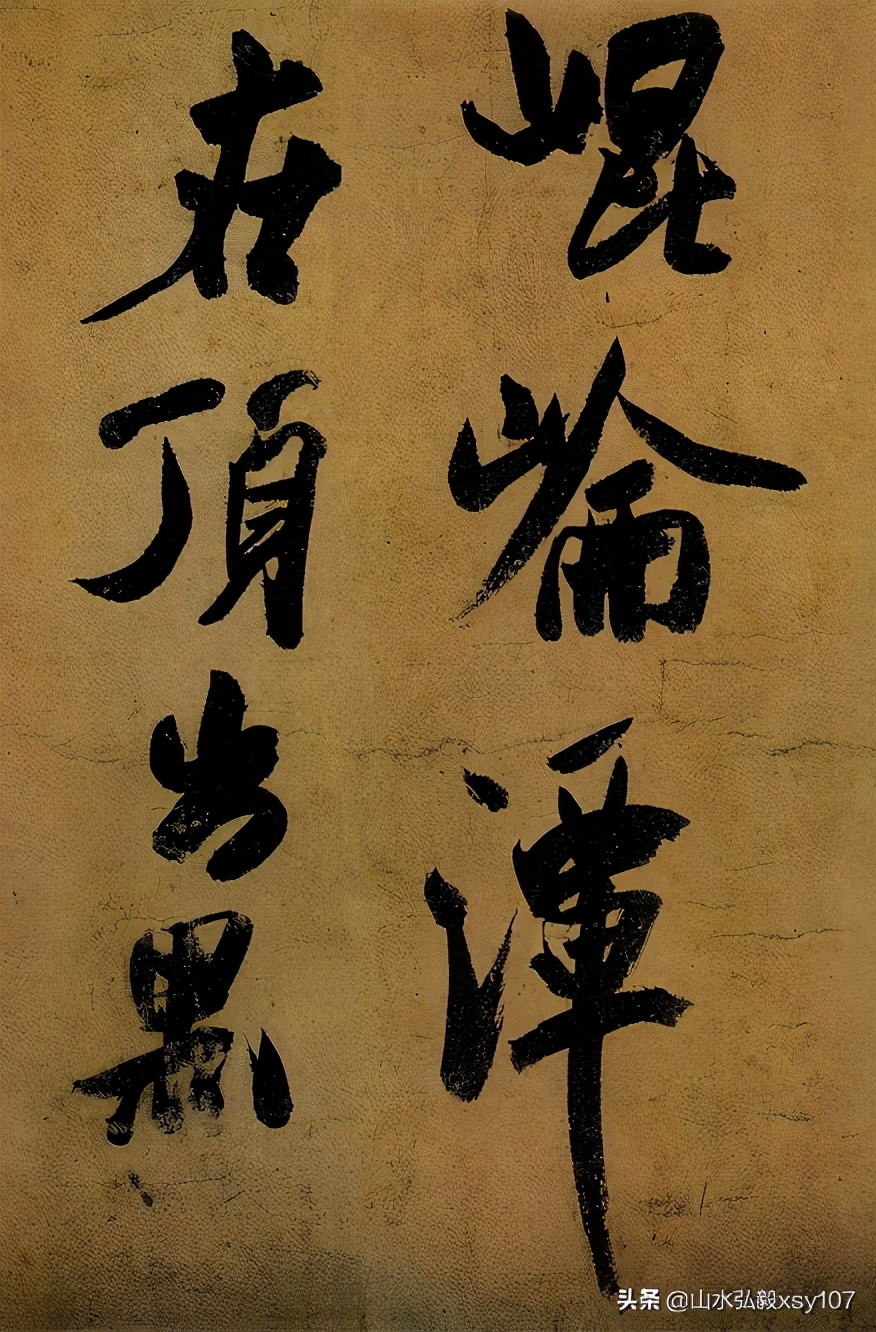 崐崘潭
在頂出黑
头条 @山水弘毅xsy107